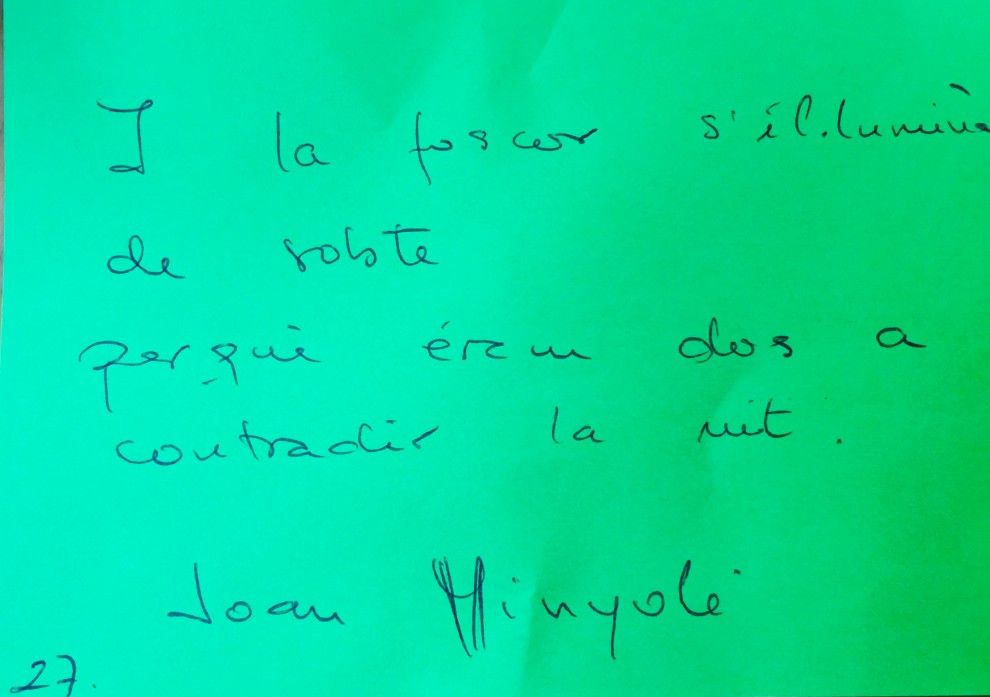 I la foscor s'il.luminà
de sobte
perquè érem dos a
contradir la nit.
Joan Minyolé
27.